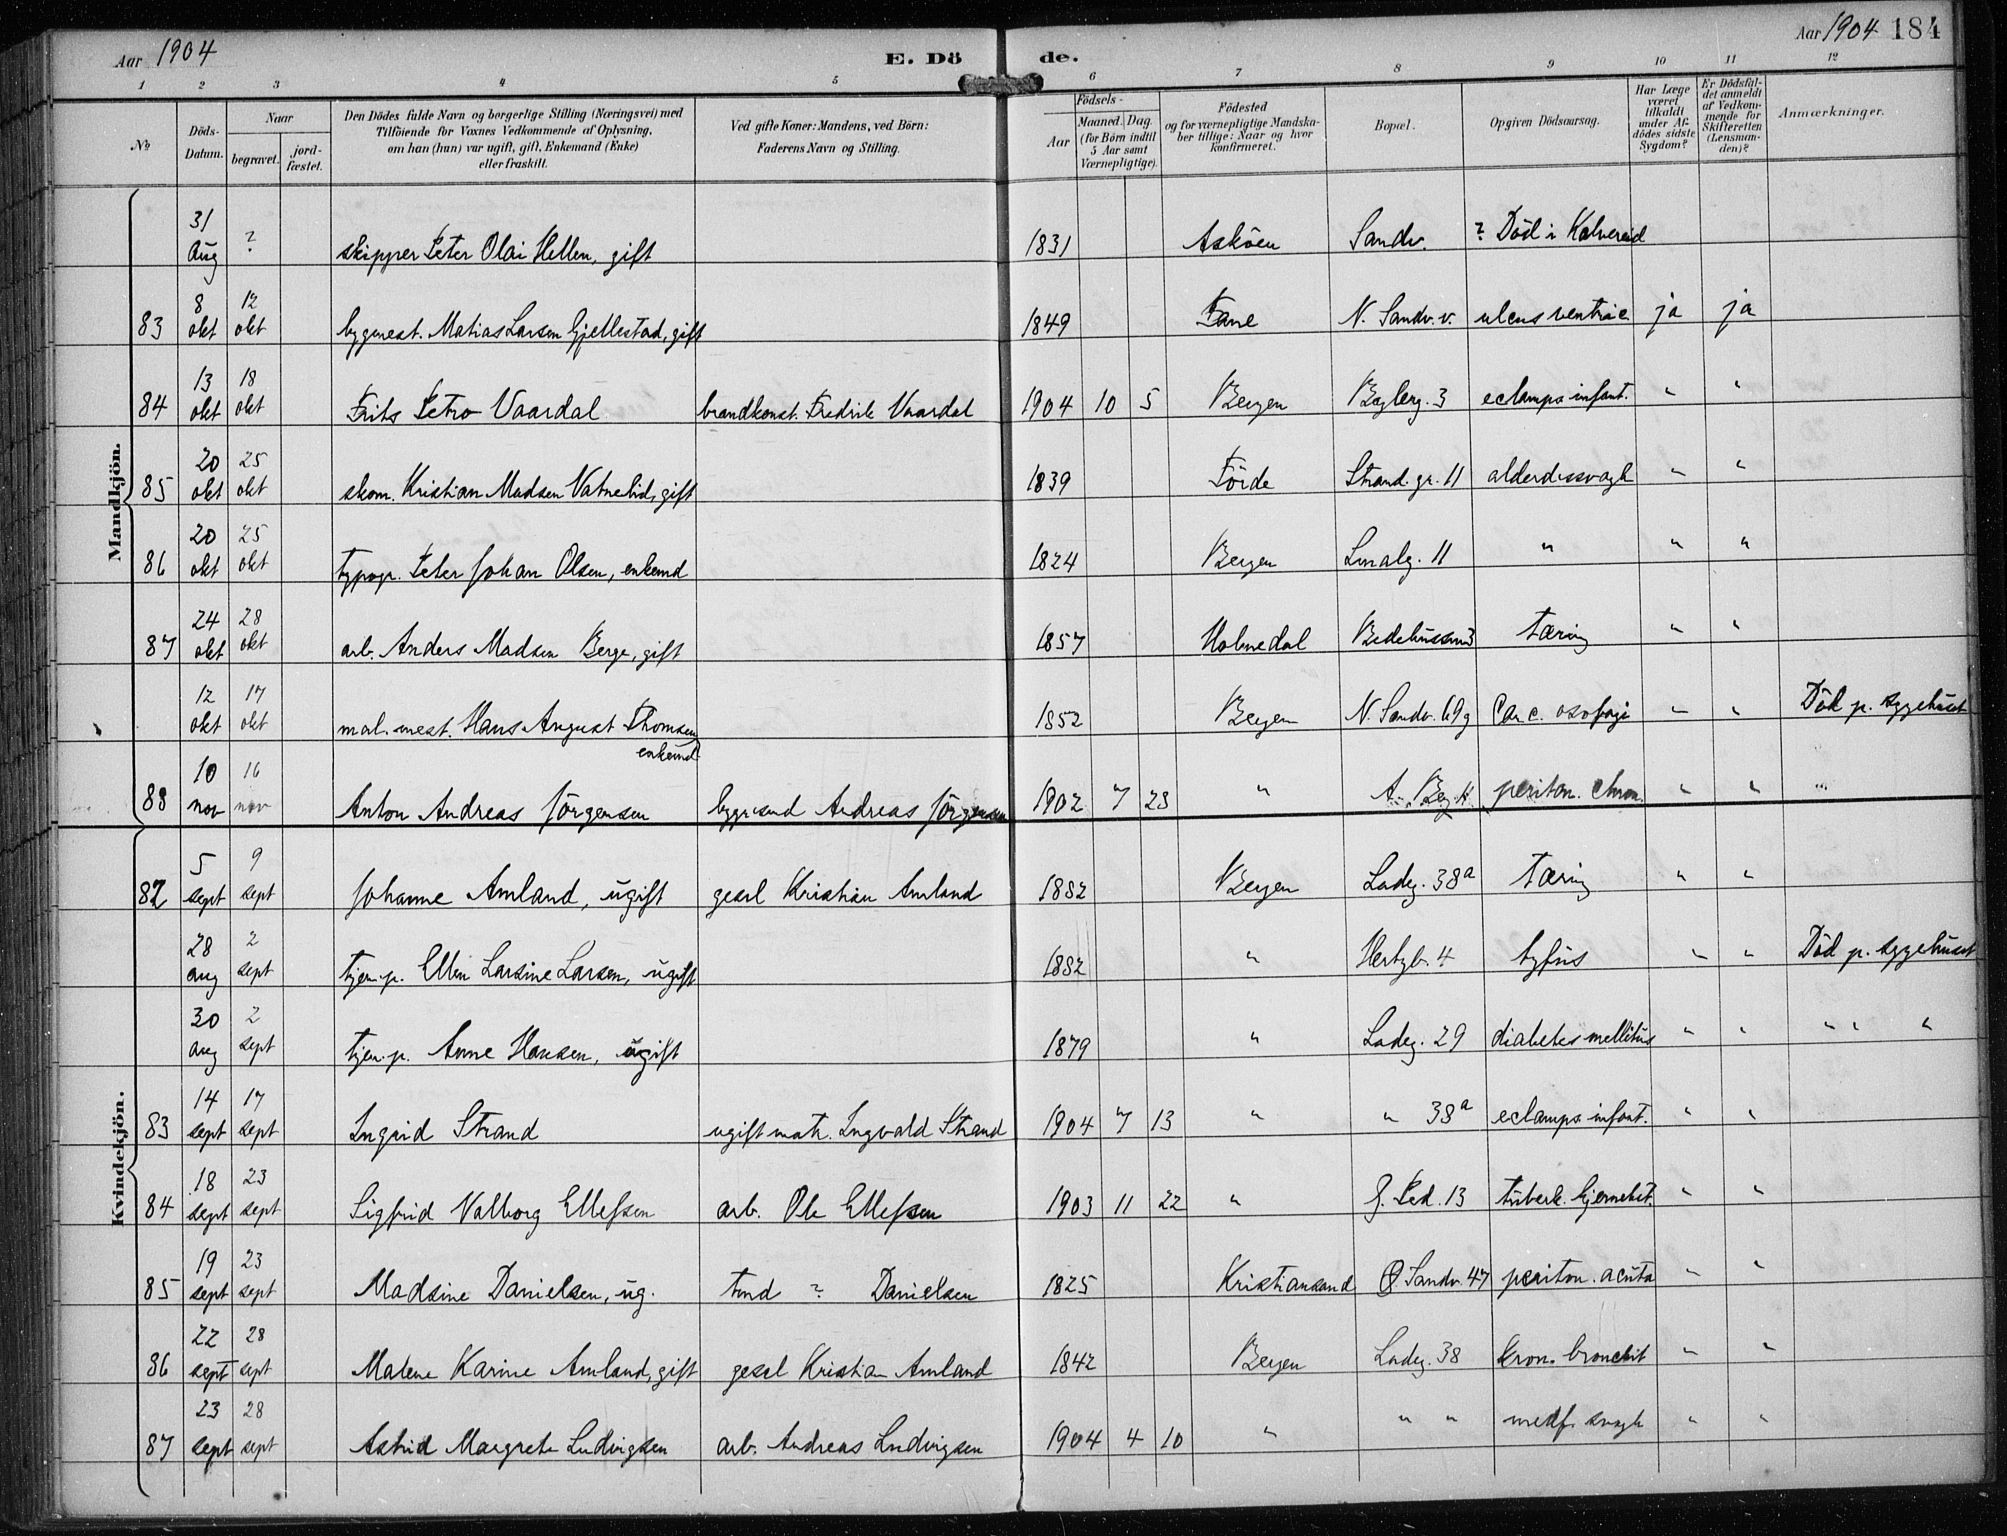 Aar 1904 E. Dö de. Aar 1904 184
1 2 3 4 5 6 7 8 9 10 11 12
No
Döds-Datum.
Naar begravet. jordfæstet.
Den Dödes fulde Navn og borgerlige Stilling (Næringsvei) med
Tilföiende for Voxnes Vedkommende af Oplysning,
om han (hun) var ugift, gift, Enkemand (Enke)
eller fraskilt.
Ved gifte Koner: Mandens, ved Börn:
Faderens Navn og Stilling.
Födsels-
Aar Maaned. Dag.
(for Börn indtil
5 Aar samt
Værnepligtige).
Födested
og for værnepligtige Mandska-
ber tillige: Naar og hvor
konfirmeret.
Bopæl.
Opgiven Dödsaarsag.
Har Læge
været
tilkaldt
under Af-
dödes sidste
Sygdom?
Er Dödsfal-
det anmeldt
af Vedkom-
mende for
Skifteretten
(Lensman-
den)?
Anmærkninger.
Mandkjön.
31 Aug ? skipper Peter Olai Hellen, gift 1831 Asköen Sandv. ? Död i Kalvereid
83 8 okt 12 okt bygmest. Matias Larsen Gjellestad, gift 1849 Fane N. Sandv. v. ulcus ventric ja ja
84 13 okt 18 okt Frits Petro Vaardal brandkonst. Fredrik Vaardal 1904 10 5 Bergen 3 eclamps. infant. " "
85 20 okt 25 okt skom. Kristian Madsen Vatnelid, gift 1839 Förde Strand. gr. 11 alderdssvagh " "
86 20 okt 25 okt typogr. Peter Johan Olsen, enkemd 1824 Bergen 11 " " "
87 24 okt 28 okt arb. Anders Madsen Berge, gift 1857 Holmedal Tæring " "
12 okt 17 okt mal. mest. Hans August Thomsen enkemd 1852 Bergen N. Sandv. 69g Carc. osofagi " " Död p. sygehuset
88 10 nov 16 nov Anton Andreas Jörgensen Andreas Jörgensen 1902 7 23 " periton. chron. " " "
Kvindekjön.
82 5 sept 9 sept Johanne Amland, ugift gesel Kristian Amland 1882 Bergen Ladeg. 38a Tæring " "
28 aug 2 sept tjen.p. Ellen Larsine Larsen, ugift 1882 " Hertzb. 4 tyfus " " Död p. sygehuset
30 aug 2 sept tjen.p. Anne Hansen, ugift 1879 " Ladeg. 29 diabetes mellitus " " " " "
83 14 sept 17 sept Ingrid Strand ugift matr. Ingvald Strand 1904 7 13 " " 38a eclamps. infant. " "
84 18 sept 23 sept Sigfrid Valborg Ellefsen arb. Ole Ellefsen 1903 11 22 " 13 tuberk. hjernebet. " "
85 19 sept 23 sept Madsine Danielsen, ug. ? Danielsen 1825 Kristiansand Ø. Sandv. 47 periton. acuta " "
86 22 sept 28 sept Malene Karine Amland, gift gesel Kristian Amland 1842 Bergen Ladeg. 38 kron. bronchit " "
87 23 sept 28 sept Astrid Margrete Ludvigsen arb. Andreas Ludvigsen 1904 4 10 " " " medf. svagh " "